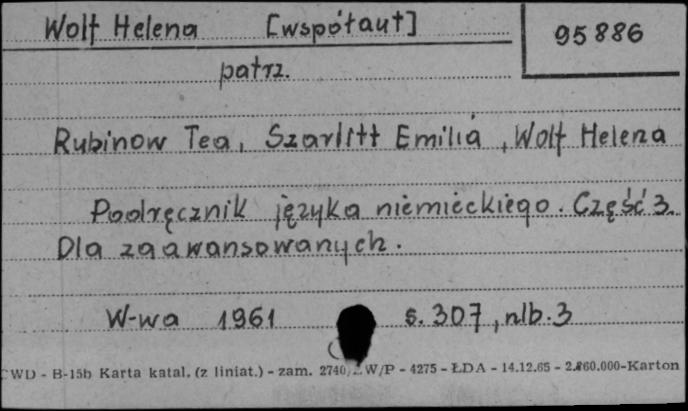 Wolf Helena [współaut]
95886
patrz.
Rubinow Tea, Szarlitt Emilia, Wolf Helena
Podręcznik języka niemieckiego. Część 3.
Dla zaawansowanych.
W-wa 1961 s. 307, nlb. 3
CWD - B-15b Karta katal. (z liniat.) - zam. 2740 W/P - 4275 - ŁDA - 14.12.65 - 2.860.000-Karton